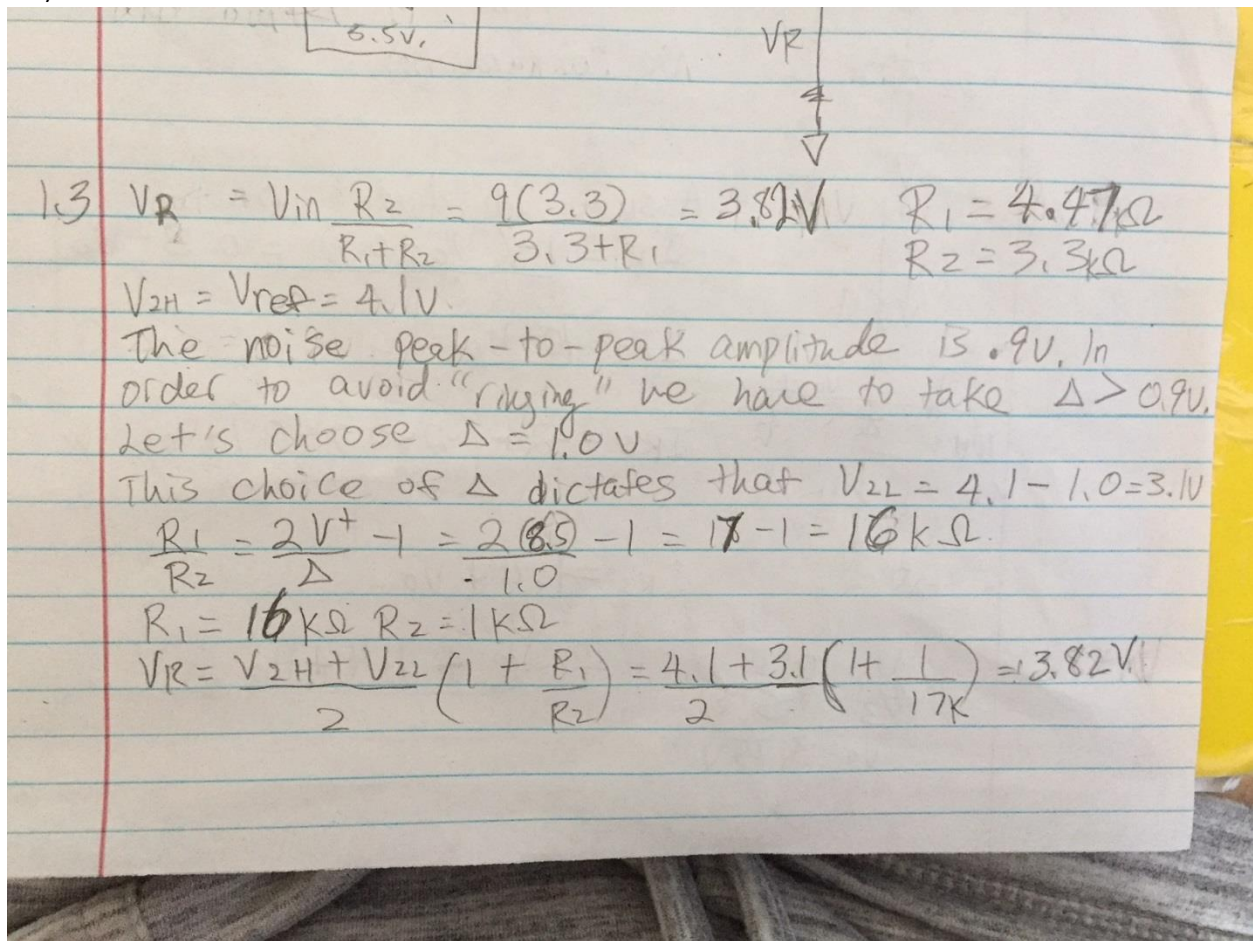 6.5V.
VR
1.3 VR = Vin R2 / R1+R2 = 9(3.3) / 3.3+R1 = 3.82V R1 = 4.47kΩ
R2 = 3.3kΩ
V2H = Vref = 4.1V.
The noise peak-to-peak amplitude is .9V. In
order to avoid "ringing" we have to take Δ > 0.9V.
Let's choose Δ = 1.0V
This choice of Δ dictates that V2L = 4.1 - 1.0 = 3.1V
R1 / R2 = 2V+ / Δ - 1 = 2(8.5) / 1.0 - 1 = 17 - 1 = 16kΩ.
R1 = 16kΩ R2 = 1kΩ
VR = V2H + V2L / 2 (1 + R1 / R2) = 4.1 + 3.1 / 2 (1 + 1 / 17K) = 3.82V.